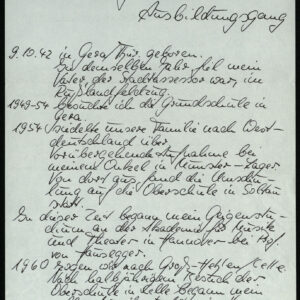 Ausbildungsgang
9.10.42 in Gera Thür. geboren.
In demselben Jahr fiel mein
Vater, der Stadtassessor war, im
Rußlandfeldzug.
1949-54 besuchte ich die Grundschule in
Gera.
1954 siedelte unsere Familie nach West-
deutschland über
vorübergehende Aufnahme bei
meinem Onkel in Munster-Lager
von dort aus fand die Umschu-
lung auf die Oberschule in Soltau
statt.
In dieser Zeit begann mein Geigenstu-
dium an der Akademie für Musik
und Theater in Hannover bei Prof.
von Hausegger.
1960 zogen wir nach Groß-Hehlen, Celle
Nach halbjährigem Besuch der
Oberschule in Celle begann mein